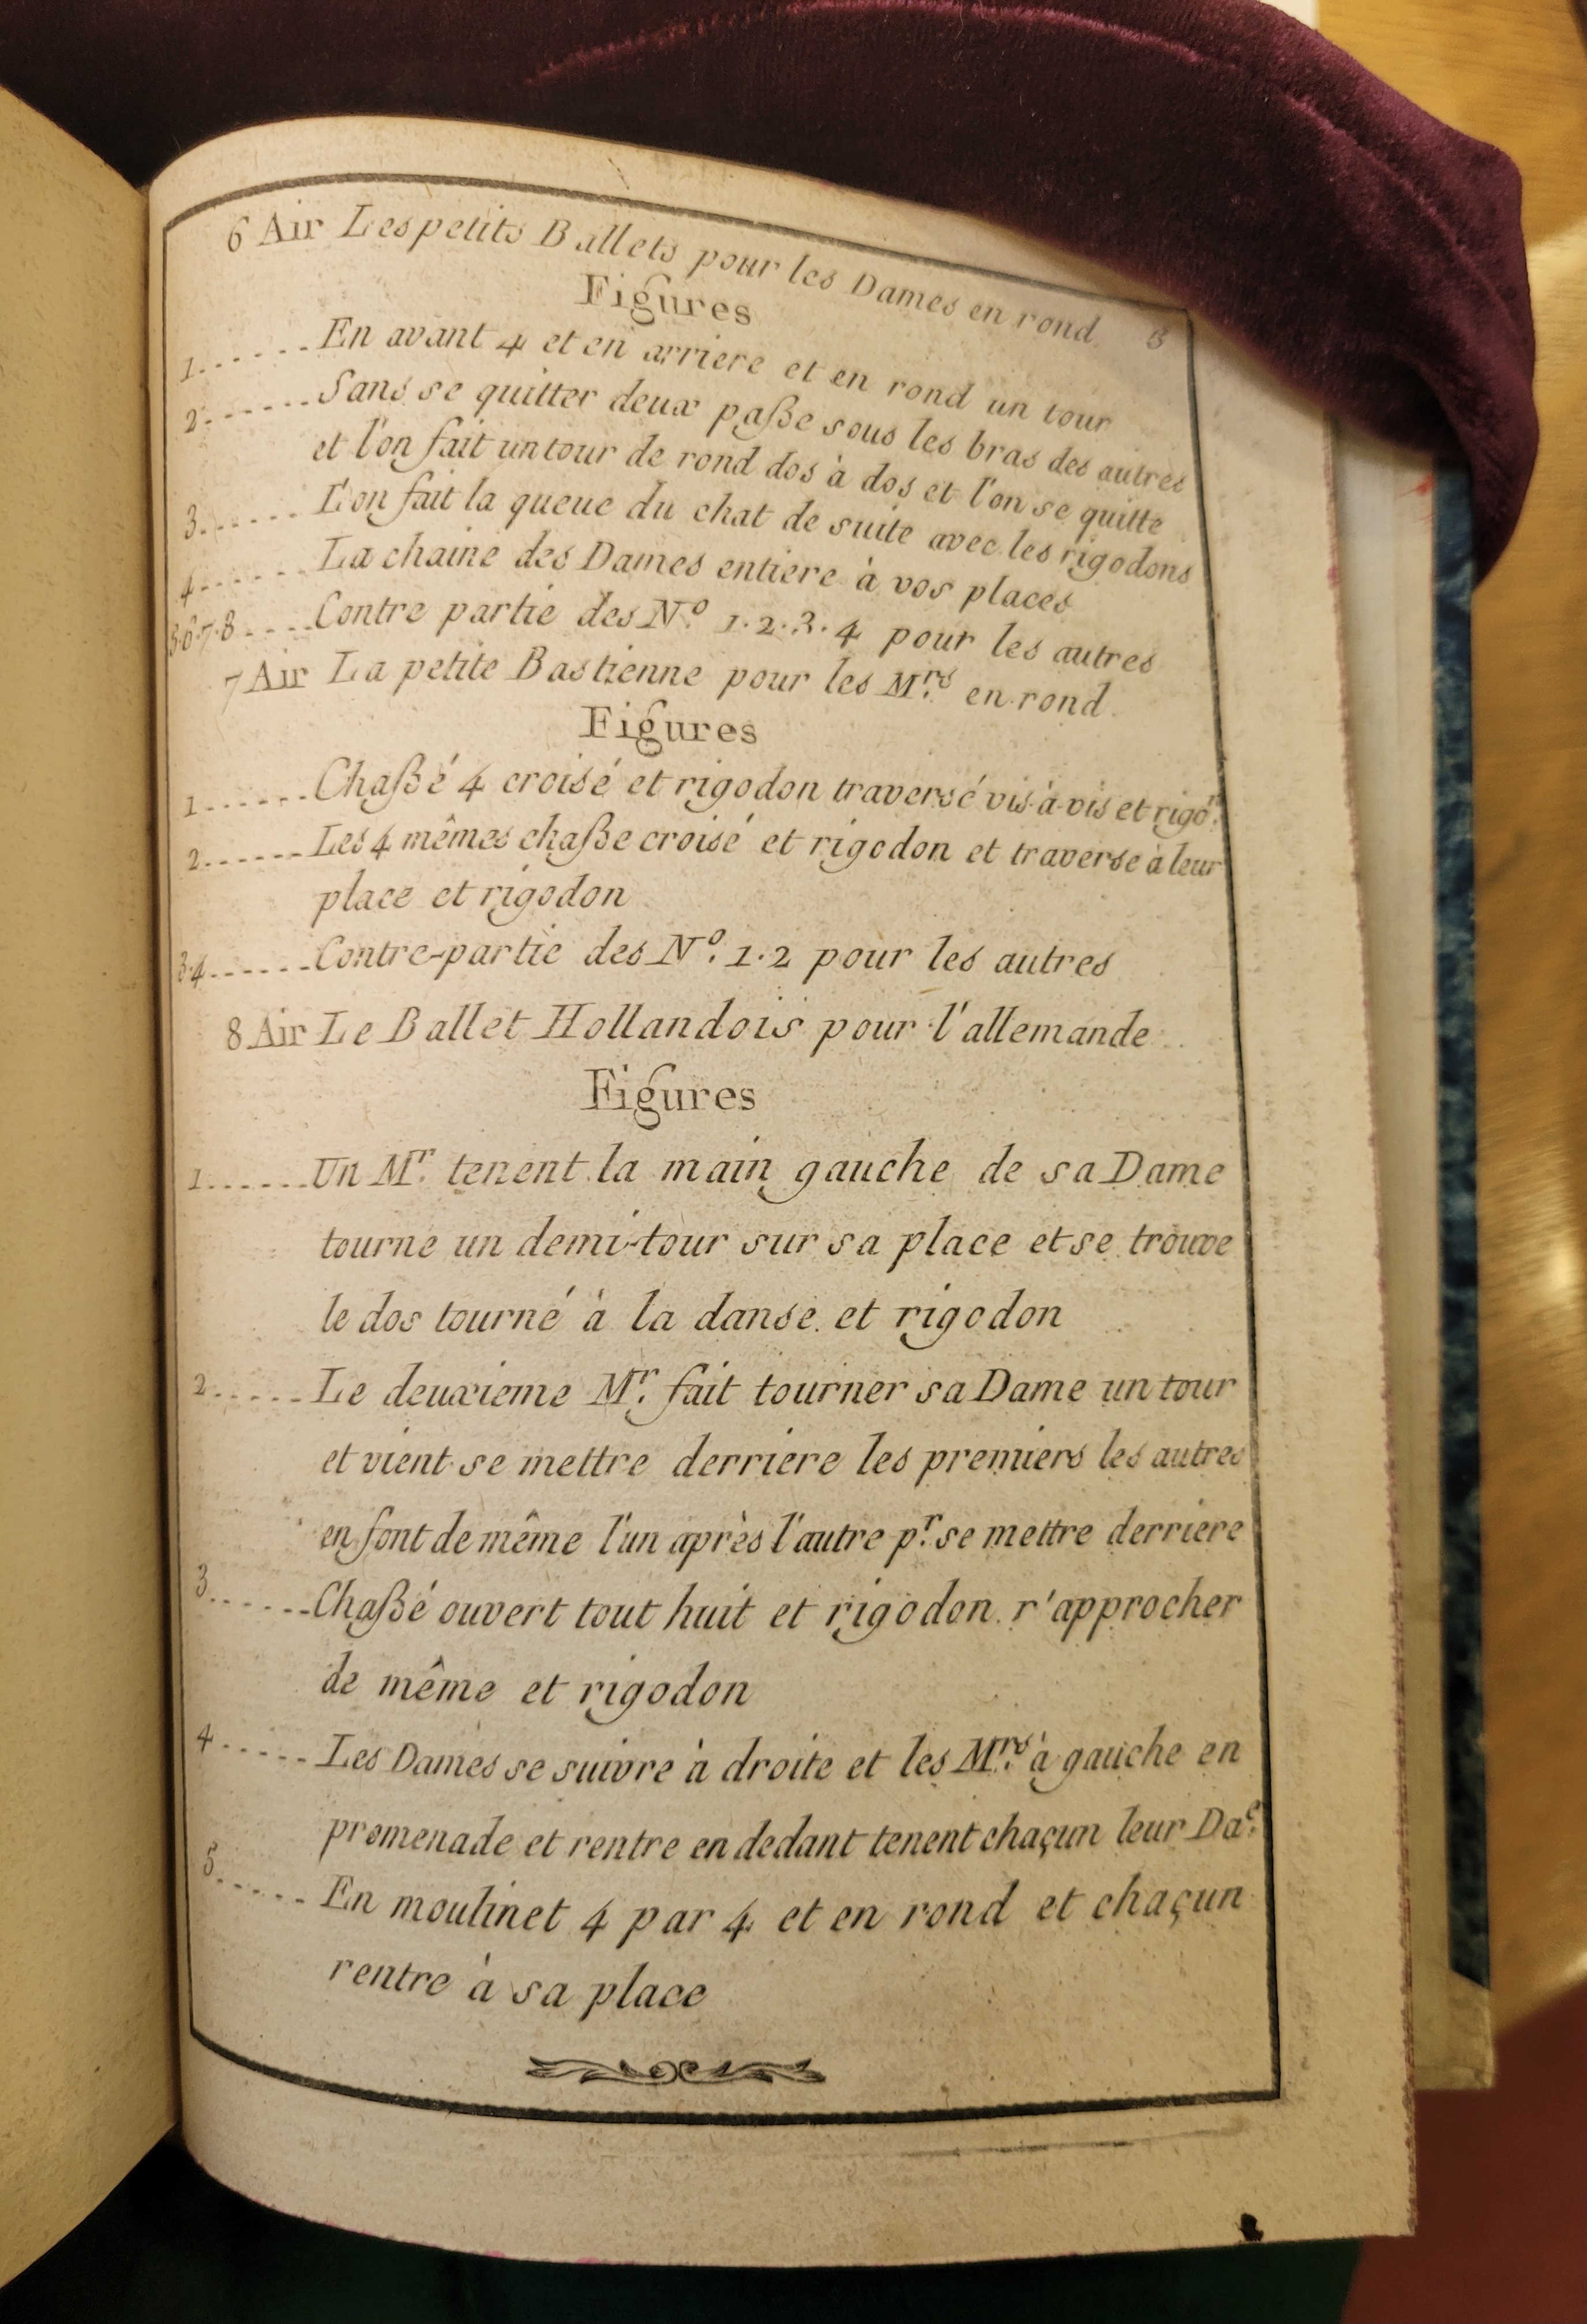 6 Air Les petits Ballets pour les Dames en rond
Figures
1......En avant 4 et en arriere et en rond un tour
2......Sans se quitter deux paße sous les bras des autres
et l'on fait un tour de rond dos à dos et l'on se quitte
3......L'on fait la queue du chat de suite avec les rigodons
4......La chaine des Dames entiere à vos places
5.6.7.8....Contre partie des N.º 1.2.3.4 pour les autres
7 Air La petite Bastienne pour les M.rs en rond
Figures
1......Chaßé 4 croisé et rigodon traversé vis-à-vis et rigo.n
2......Les 4 mêmes chaße croisé et rigodon et traverse à leur
place et rigodon
3.4......Contre-partie des N.º 1.2 pour les autres
8 Air Le Ballet Hollandois pour l'allemande
Figures
1......Un M.r tenent la main gauche de sa Dame
tourne un demi-tour sur sa place et se trouve
le dos tourné à la danse et rigodon
2......Le deuxieme M.r fait tourner sa Dame un tour
et vient se mettre derriere les premiers les autres
en font de même l'un après l'autre p.r se mettre derriere
3......Chaßé ouvert tout huit et rigodon r'approcher
de même et rigodon
4......Les Dames se suivre à droite et les M.rs à gauche en
promenade et rentre en dedant tenent chaçun leur Da.e
5......En moulinet 4 par 4 et en rond et chaçun
rentre à sa place